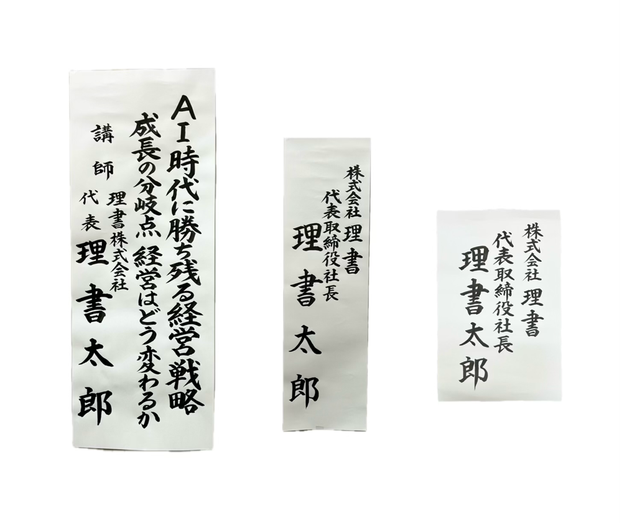 AI時代に勝ち残る経営戦略
成長の分岐点 経営はどう変わるか
講師 理書株式会社
代表 理書太郎
株式会社 理書
代表取締役社長
理書太郎
株式会社 理書
代表取締役社長
理書太郎